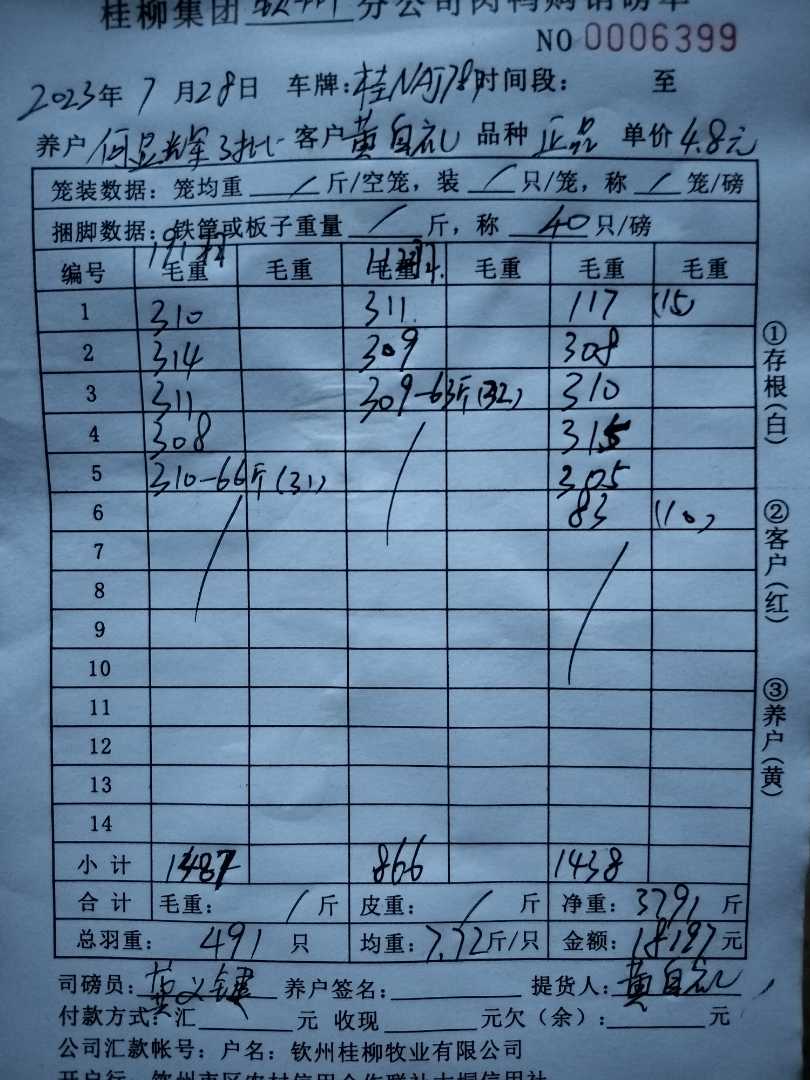 桂柳集团钦州分公司肉鸭购销磅单
NO 0006399
2023年 7 月28日 车牌:桂NAJ78 时间段: 至
养户 何显辉3批 客户 黄自礼 品种 正品 单价 4.8元
笼装数据: 笼均重 / 斤/空笼, 装 / 只/笼, 称 / 笼/磅
捆脚数据: 铁篢或板子重量 / 斤, 称 40 只/磅
编号 毛重 毛重 毛重 毛重 毛重 毛重
1 310 311 117 (15)
2 314 309 308
3 311 309-63斤(32) 310
4 308 315
5 310-66斤(31) 305
6 83 (10)
7
8
9
10
11
12
13
14
小 计 1487 866 1438
合 计 毛重: / 斤 皮重: / 斤 净重: 3791 斤
总羽重: 491 只 均重: 7.72斤/只 金额: 18197元
司磅员: 黄义键 养户签名: 提货人: 黄自礼
付款方式: 汇 元 收现 元欠(余): 元
公司汇款帐号: 户名: 钦州桂柳牧业有限公司
开户行: 钦州市区农村信用合作联社大垌信用社
①存根(白)
②客户(红)
③养户(黄)